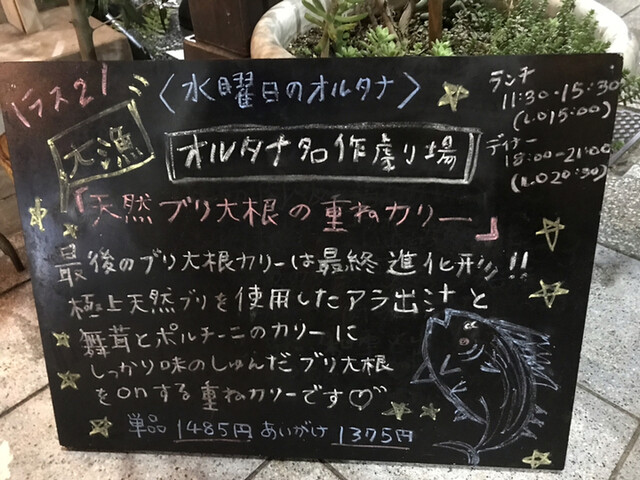 ラスク!
〈水曜日のオルタナ〉
ランチ
11:30-15:30
(L.O15:00)
ディナー
18:00-21:00
(L.O20:30)
大漁
オルタナ名作劇場
「天然ブリ大根の重ねカリー」
最後のブリ大根カリーは最終進化形!!
極上天然ブリを使用したアラ出汁と
舞茸とポルチーニのカリーに
しっかり味のしゅんだブリ大根
をonする重ねカリーです♡
単品 1485円 あいがけ 1375円